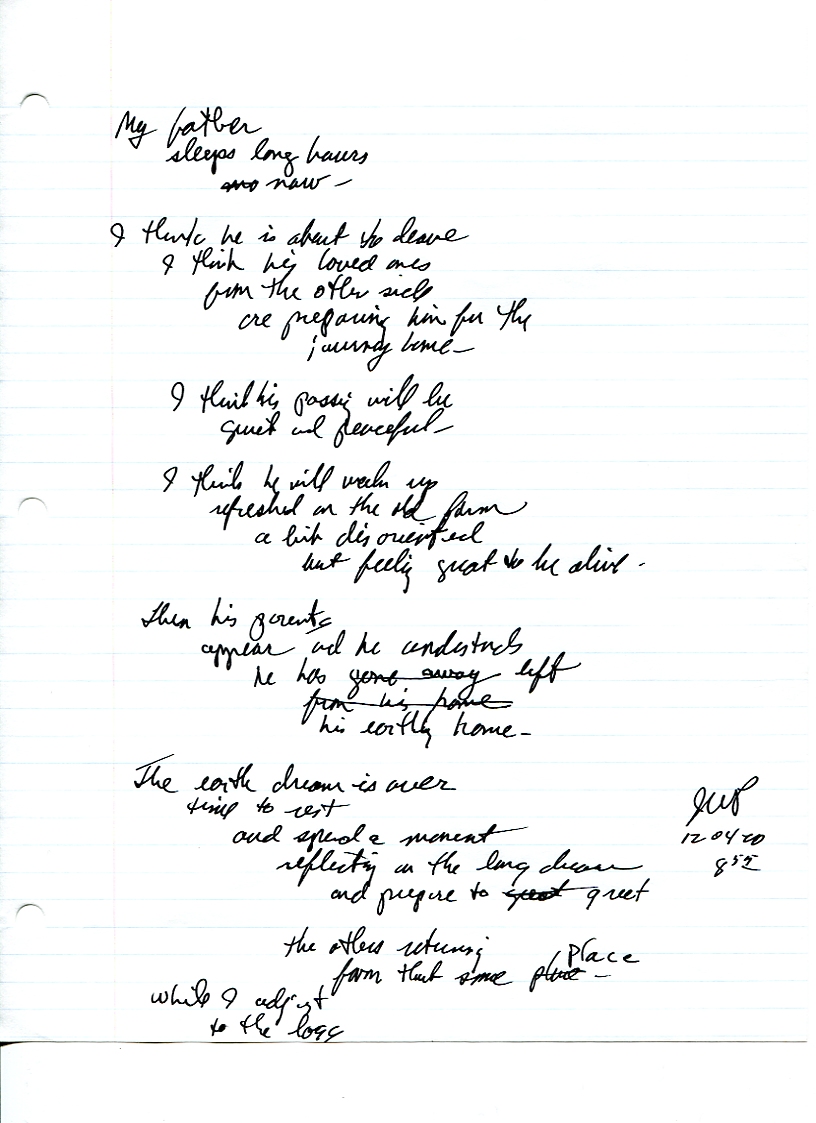 My father
sleeps long hours
now –
I think he is about to leave
I think his loved ones
from the other side
are preparing him for the
journey home –
I think his passing will be
quiet and peaceful –
I think he will wake up
refreshed on the old farm
a bit disoriented
but feeling great to be alive .
then his parents
appear and he understands
he has gone away left
from his home
his earthly home –
The earth dream is over
time to rest
and spend a moment
reflecting on the long dream
and prepare to greet
the others returning
from that same place place –
while I adjust
to the loss
12 04 20
8 55